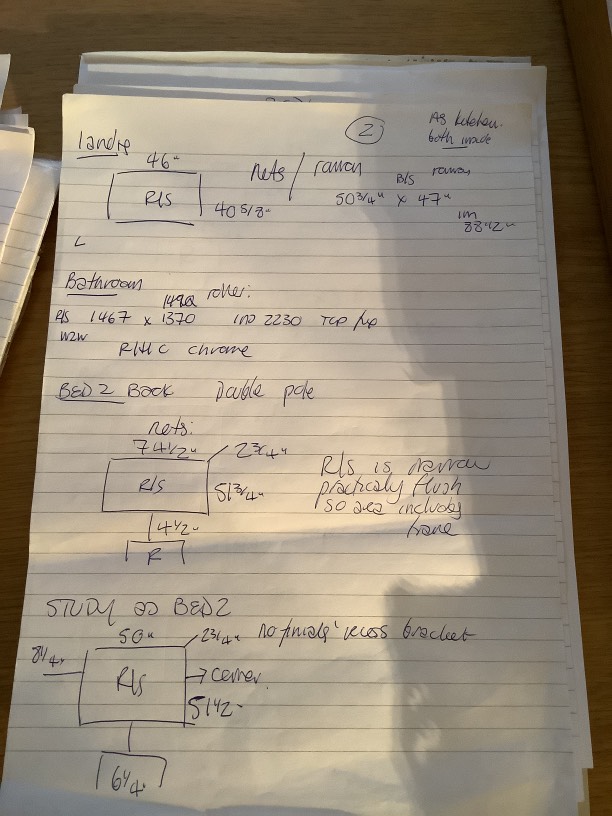 landing
②
As kitchen.
both inside
46"
nets / roman
B/S roman
R/S
40 5/8"
50 3/4" x 47"
im
88 1/2"
L
Bathroom
roller:
R/S 1467 x 1370 ino 2230 Top /
W2W
RHC chrome
BED 2 Back Double pole
nets:
74 1/2" 2 3/4"
R/S
51 3/4"
R/S is narrow
practically flush
so area includes
frame
4 1/2"
R
STUDY as BED 2
50" 2 3/4" no finials' recess bracket
8 1/4"
R/S
→ corner.
51 1/2"
6 1/4"